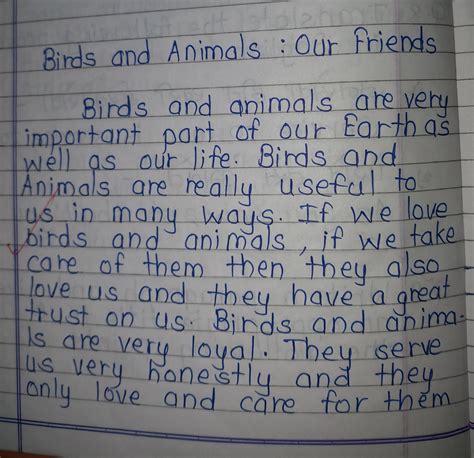 Birds and Animals : Our Friends
Birds and animals are very
important part of our Earth as
well as our life. Birds and
Animals are really useful to
us in many ways. If we love
birds and animals, if we take
care of them then they also
love us and they have a great
trust on us. Birds and anima-
ls are very loyal. They serve
us very honestly and they
only love and care for them